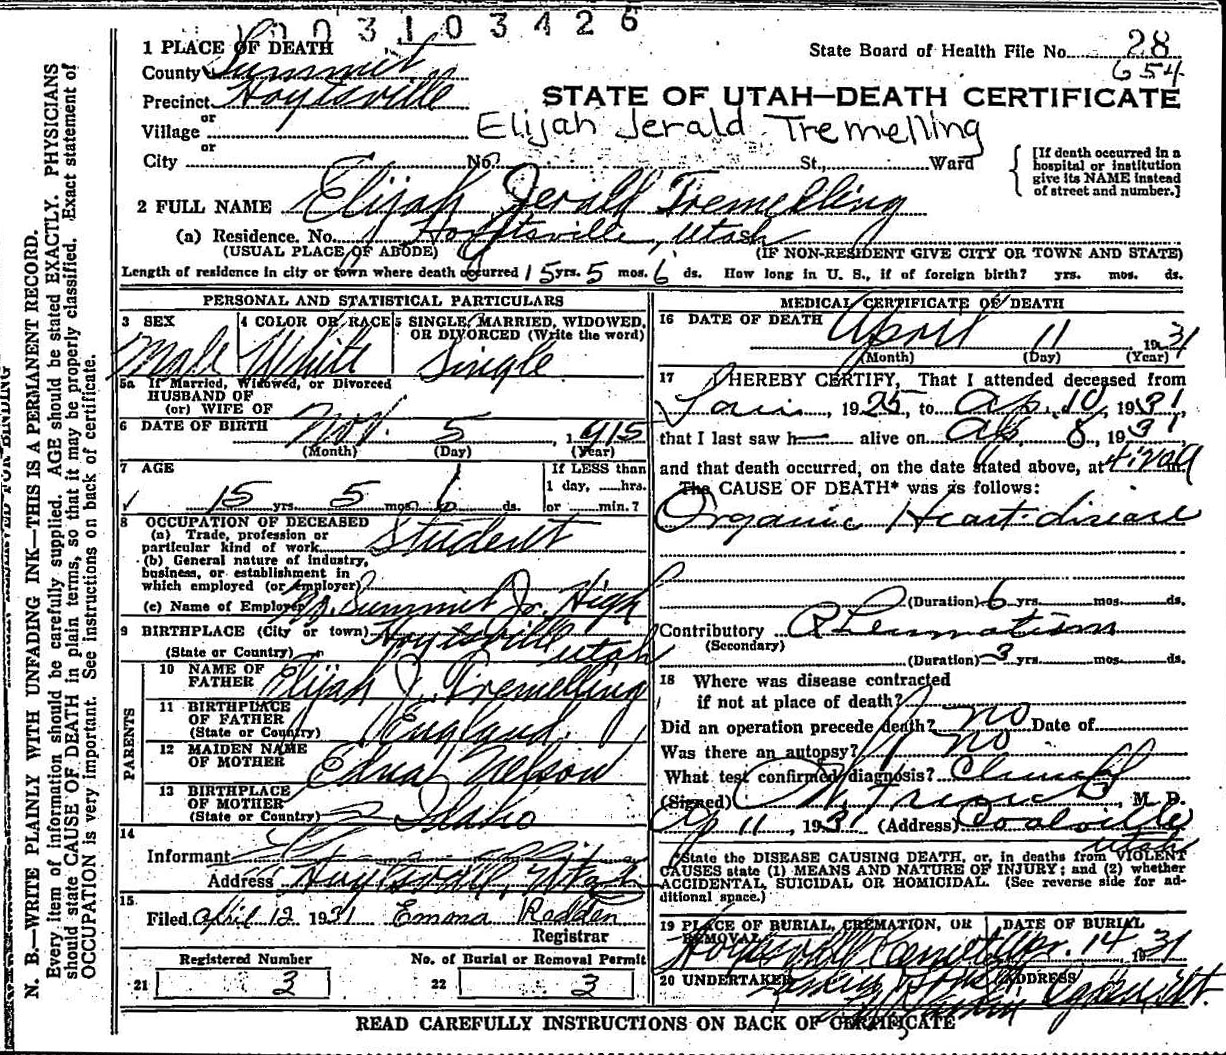 003103426
1 PLACE OF DEATH
State Board of Health File No. 28
654
County Summit
Precinct Hoytsville
or
Village
or
City No. St., Ward
STATE OF UTAH—DEATH CERTIFICATE
Elijah Jerald Tremelling
[If death occurred in a
hospital or institution
give its NAME instead
of street and number.]
2 FULL NAME Elijah Jerald Tremelling
(a) Residence. No. Hoytsville, Utah
(USUAL PLACE OF ABODE) (IF NON-RESIDENT GIVE CITY OR TOWN AND STATE)
Length of residence in city or town where death occurred 15 yrs. 5 mos. 6 ds. How long in U. S., if of foreign birth? yrs. mos. ds.
PERSONAL AND STATISTICAL PARTICULARS
3 SEX 4 COLOR OR RACE 5 SINGLE, MARRIED, WIDOWED,
OR DIVORCED (Write the word)
Male White Single
5a If Married, Widowed, or Divorced
HUSBAND OF
(or) WIFE OF
6 DATE OF BIRTH Nov. 5, 1915
(Month) (Day) (Year)
7 AGE If LESS than
1 day, ......hrs.
15 yrs. 5 mos. 6 ds. or ......min.?
8 OCCUPATION OF DECEASED
(a) Trade, profession or
particular kind of work Student
(b) General nature of industry,
business, or establishment in
which employed (or employer)
(c) Name of Employer No. Summit Jr. High
9 BIRTHPLACE (City or town) Hoytsville
(State or Country) Utah
PARENTS
10 NAME OF
FATHER Elijah J. Tremelling
11 BIRTHPLACE
OF FATHER
(State or Country) England
12 MAIDEN NAME
OF MOTHER Edna Nelson
13 BIRTHPLACE
OF MOTHER
(State or Country) Idaho
14
Informant
Address Hoytsville, Utah
15
Filed April 12 1931 Emma Redden
Registrar
Registered Number No. of Burial or Removal Permit
21 3 22 3
MEDICAL CERTIFICATE OF DEATH
16 DATE OF DEATH April 11 1931
(Month) (Day) (Year)
17 I HEREBY CERTIFY, That I attended deceased from
, 1925, to Ap. 10, 1931,
that I last saw h alive on Ap. 8, 1931
and that death occurred, on the date stated above, at m.
The CAUSE OF DEATH* was as follows:
Organic Heart disease
(Duration) 6 yrs. mos. ds.
Contributory Rheumatism
(Secondary)
(Duration) 3 yrs. mos. ds.
18 Where was disease contracted
if not at place of death?
Did an operation precede death? no Date of
Was there an autopsy? no
What test confirmed diagnosis? Clinical
(Signed) M. D.
Ap 11, 1931 (Address) Coalville
Utah
*State the DISEASE CAUSING DEATH, or, in deaths from VIOLENT
CAUSES state (1) MEANS AND NATURE OF INJURY; and (2) whether
ACCIDENTAL, SUICIDAL OR HOMICIDAL. (See reverse side for ad-
ditional space.)
19 PLACE OF BURIAL, CREMATION, OR
REMOVAL DATE OF BURIAL
Hoytsville Apr. 14 1931
20 UNDERTAKER ADDRESS
Larkin Ogden, Ut.
READ CAREFULLY INSTRUCTIONS ON BACK OF CERTIFICATE
N. B.—WRITE PLAINLY WITH UNFADING INK—THIS IS A PERMANENT RECORD.
Every item of information should be carefully supplied. AGE should be stated EXACTLY. PHYSICIANS
should state CAUSE OF DEATH in plain terms, so that it may be properly classified. Exact statement of
OCCUPATION is very important. See instructions on back of certificate.